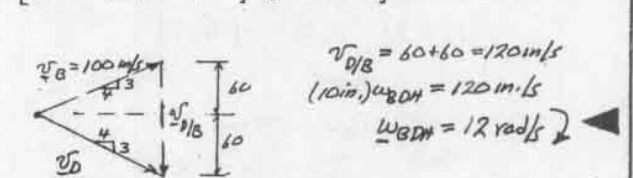 v_B = 100 in/s
3
4
60
v_D/B
60
4
3
v_D
v_D/B = 60+60 = 120 in/s
(10in.)ω_BDH = 120 in./s
ω_BDH = 12 rad/s